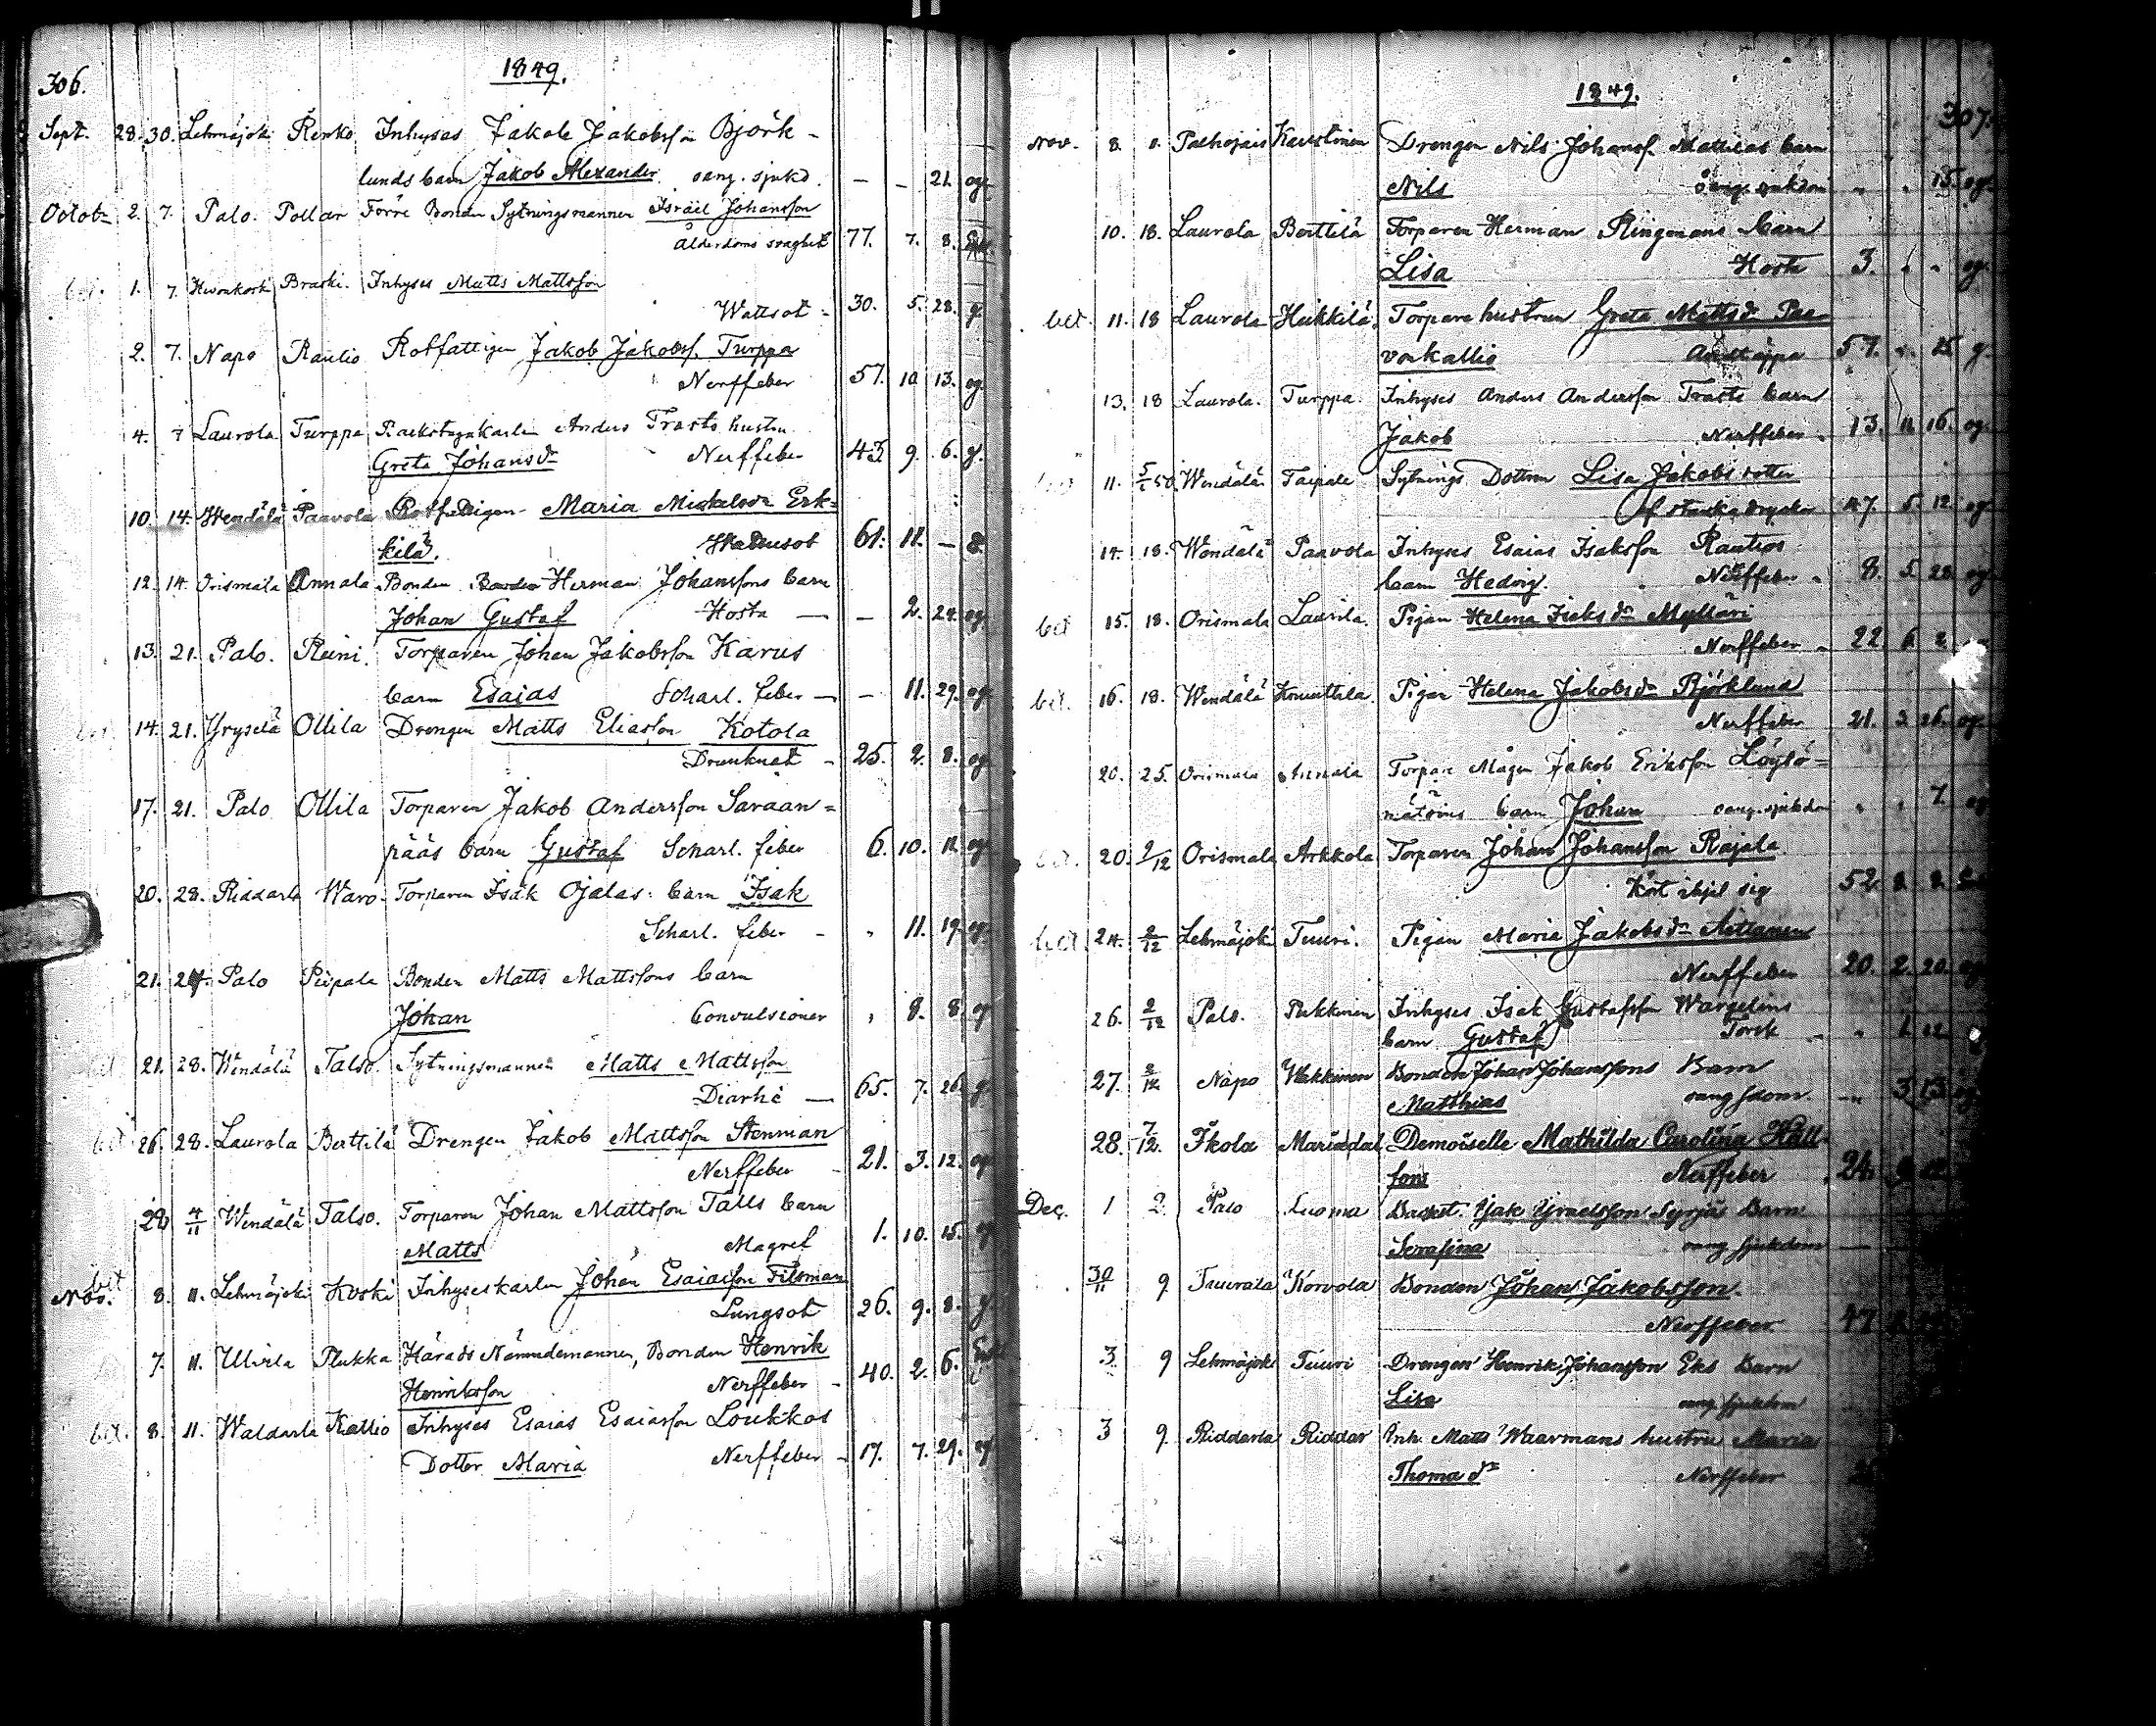 306.
1849.
Sept. 28. 30. Lehmäjoki Renko Inhyses Jakob Jakobsson Björk-
lunds barn Jakob Alexander oang. sjukd. — — 21. og.
Octob. 2. 7. Palo. Pollar Förre Bonden Sytningsmannen Israel Johansson
Ålderdoms svaghet 77. 7. 8. Enkl.
bet. 1. 7. Braski. Inhyses Matts Mattsson
Wattsot - 30. 5. 28. g.
2. 7. Napo Rautio Rotfattigen Jakob Jakobss. Turppa
Nerffeber 57. 10. 13. og.
4. 7 Laurola Turppa Anders Trasts hustru
Greta Johansdr Nerffeber 43 9. 6. g.
10. 14. Wendälä Paavola Rotfattigen Maria Mickelsdr Erk-
kilä. Wattusot 61. 11. —
12. 14. Orismala Annala Bonden Herman Johanssons barn
Johan Gustaf Hosta — — 2. 24. og.
13. 21. Palo. Reini. Torparen Johan Jakobsson Karus
barn Esaias Scharl. feber — — 11. 29. og.
14. 21. Yryselä Ollila Drengen Matts Eliasson Kotola
Drunknat - 25. 2. 8. og.
17. 21. Palo Ollila Torparen Jakob Andersson Saraan-
pääs barn Gustaf Scharl. feber 6. 10. 12. og.
20. 28. Riddarla Waro. Torparen Isak Ojalas barn Isak
Scharl. feber - „ 11. 19. og.
21. 24. Palo Piipala Bonden Matts Mattssons barn
Johan Convulsioner „ 8. 8. og
21. 28. Wendälä Talso. Sytningsmannen Matts Mattsson
Diarhé — 65. 7. 26. g.
bet 26. 28. Laurola Berttilä Drengen Jakob Mattsson Stenman
Nerffeber - 21. 3. 12. og
29 4/11 Wendälä Talso. Torparen Johan Mattsson Talls barn
Matts Magref 1. 10. 15. og
bet
Nov. 8. 11. Lehmäjoki Koski Inhyseskarlen Johan Esaiasson Filsman
Lungsot 26. 9. 8. g.
7. 11. Ullvila Plukka Härads Nämndemannen, Bonden Henrik
Henriksson Nerffeber - 40. 2. 6. Enkl
bet. 8. 11. Waldarla Kallio Inhyses Esaias Esaiasson Loukkos
Dotter Maria Nerffeber - 17. 7. 29. og
1849.
307.
Nov. 8. 11. Palhojais Kaustinen Drengen Nils Johanss. Mattilas barn
Nils oang. sjukdom „ „ 15. og.
10. 18. Laurola Berttilä Torparen Herman Ringmans barn
Lisa Hosta 3. „ „ og.
bet. 11. 18 Laurola Heikkilä. Torpare hustrun Greta Mattsdr Paa-
vonkallio Andtäppa 57. 25 g.
13. 18 Laurola. Turppa. Inhyses Anders Andersson Trasts barn
Jakob Nerffeber. 13. 11. 16. og.
11. 5/1 50. Wendälä Taipale Sytnings Dottren Lisa Jakobsdotter
Af starka drycker 47. 5. 12. og
14. 18. Wendälä Paavola Inhyses Esaias Isaksson Rautios
barn Hedvig. Nerffeber. 8. 5. 28. og
bet 15. 18. Orismala Laurila. Pigan Helena Isaksdr Mylläri
Nerffeber. 22. 6. 2.
bet. 16. 18. Wendälä Knuuttila Pigan Helena Jakobsdr Björklund
Nerffeber 21. 3. 26. og
20. 25. Orismala Annala Torpare Mågen Jakob Eriksson Löylö-
barn Johan oang. sjukdom „ „ 7. og
bet. 20. 2/12 Orismala Arkkola Torparen Johan Johansson Rajala
Kört ihjel sig 52.
bet 24. 2/12 Lehmäjoki Tuuri. Pigan Maria Jakobsdr
Nerffeber 20. 2. 20. og
26. 2/12 Palo. Pukkinen Inhyses Isak Gustafsson Wargelins
barn Gustaf Torsk - „ 1. 12
27. 2/12 Napo Bonden Johan Johanssons Barn
Matthias oang sdom. — 3. 13. og
28. 7/12. Ikola Mariedal Demoiselle Mathilda Carolina Häll-
fors Nerffeber 24.
Dec. 1 2. Palo Luoma Backst. Isak Israelsson Syrjäs Barn
Serafina oang sjukdom —
30/11 9. Tuurala Korvola Bonden Johan Jakobsson.
Nerffeber. 47.
3. 9 Lehmäjoki Tuuri Drengen Henrik Johansson Eks Barn
Lisa oang sjukdom
3 9. Riddarla Riddar Inh. Matts Waarmans hustru Maria
Thomasdr Nerffeber